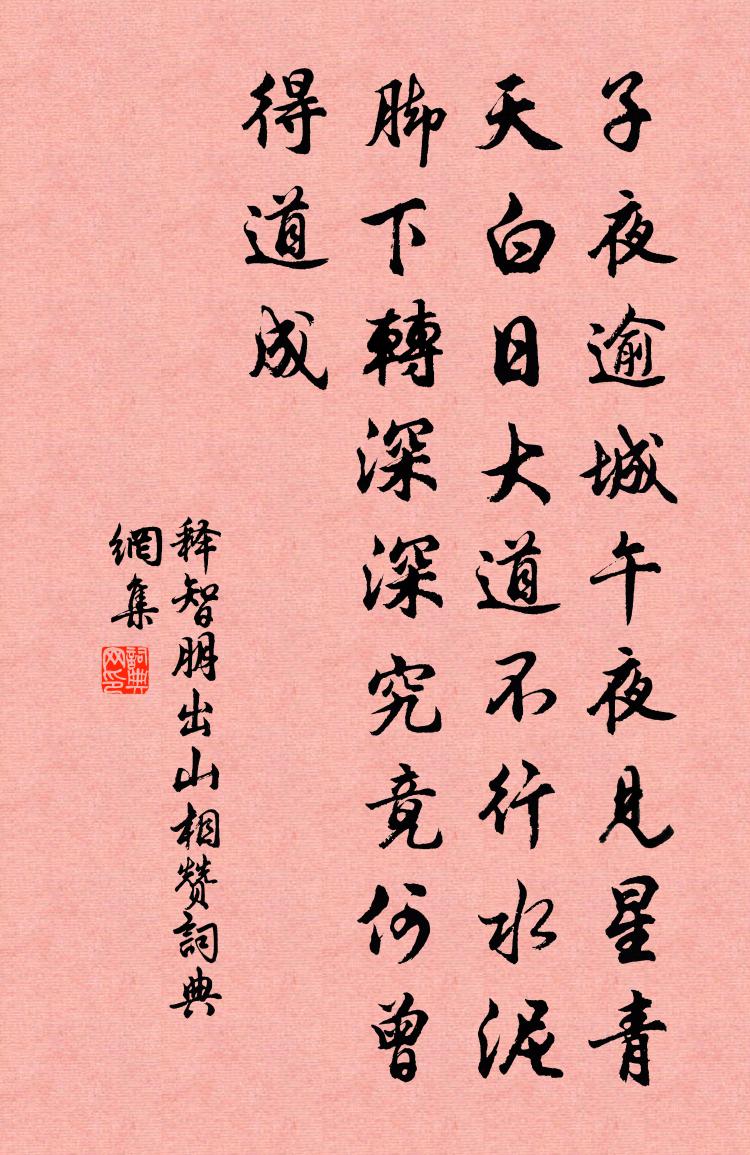 子夜逾城午夜見星青
天白日大道不行水泥
脚下轉深深究竟何曾
得道成
释智朋出山相赞詞典
網集
詞典
网印